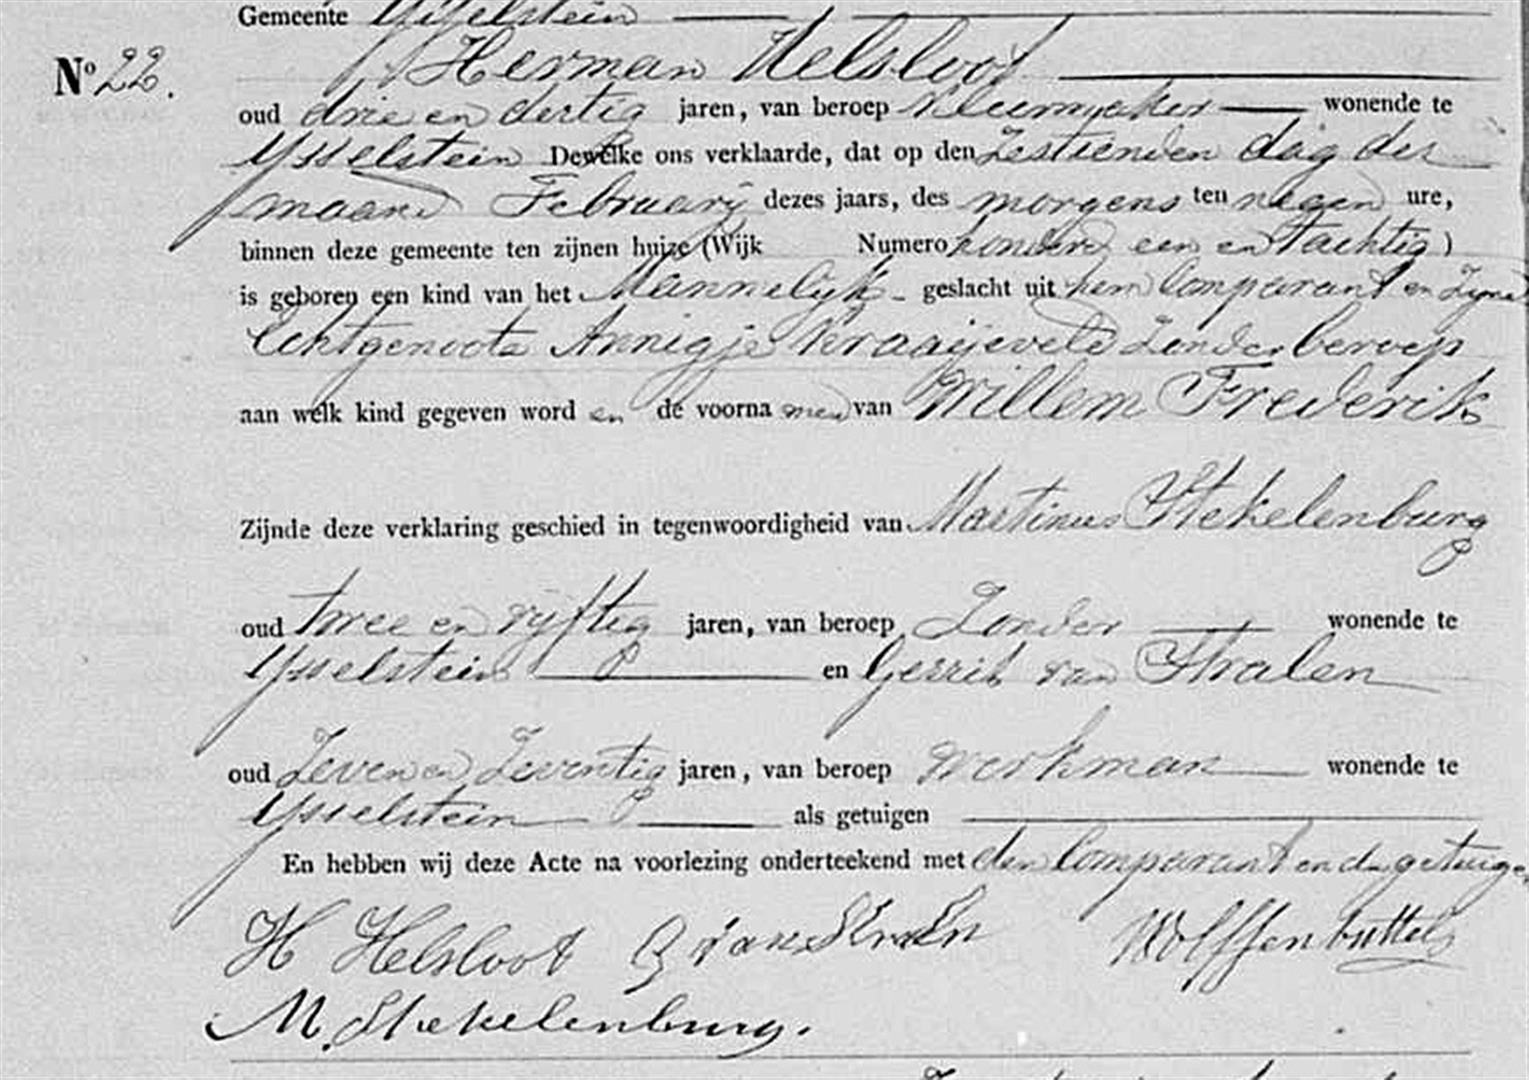 Gemeente IJsselstein
No 22. Herman Helsloot
oud drie en dertig jaren, van beroep kleermaker wonende te
IJsselstein Dewelke ons verklaarde, dat op den zestienden dag der
maand Februarij dezes jaars, des morgens ten negen ure,
binnen deze gemeente ten zijnen huize (Wijk Numero honderd een en tachtig)
is geboren een kind van het Mannelijk geslacht uit hem Comparant en zijne
Echtgenoote Annigje Kraaijeveld zonder beroep
aan welk kind gegeven word en de voorna men van Willem Frederik
Zijnde deze verklaring geschied in tegenwoordigheid van Martinus Stekelenburg
oud twee en vijftig jaren, van beroep Zonder wonende te
IJsselstein en Gerrit van Stralen
oud Zeven en Zeventig jaren, van beroep werkman wonende te
IJsselstein als getuigen
En hebben wij deze Acte na voorlezing onderteekend met den Comparant en de getuigen
H Helsloot G van Stralen Wolffenbuttel
M. Stekelenburg.